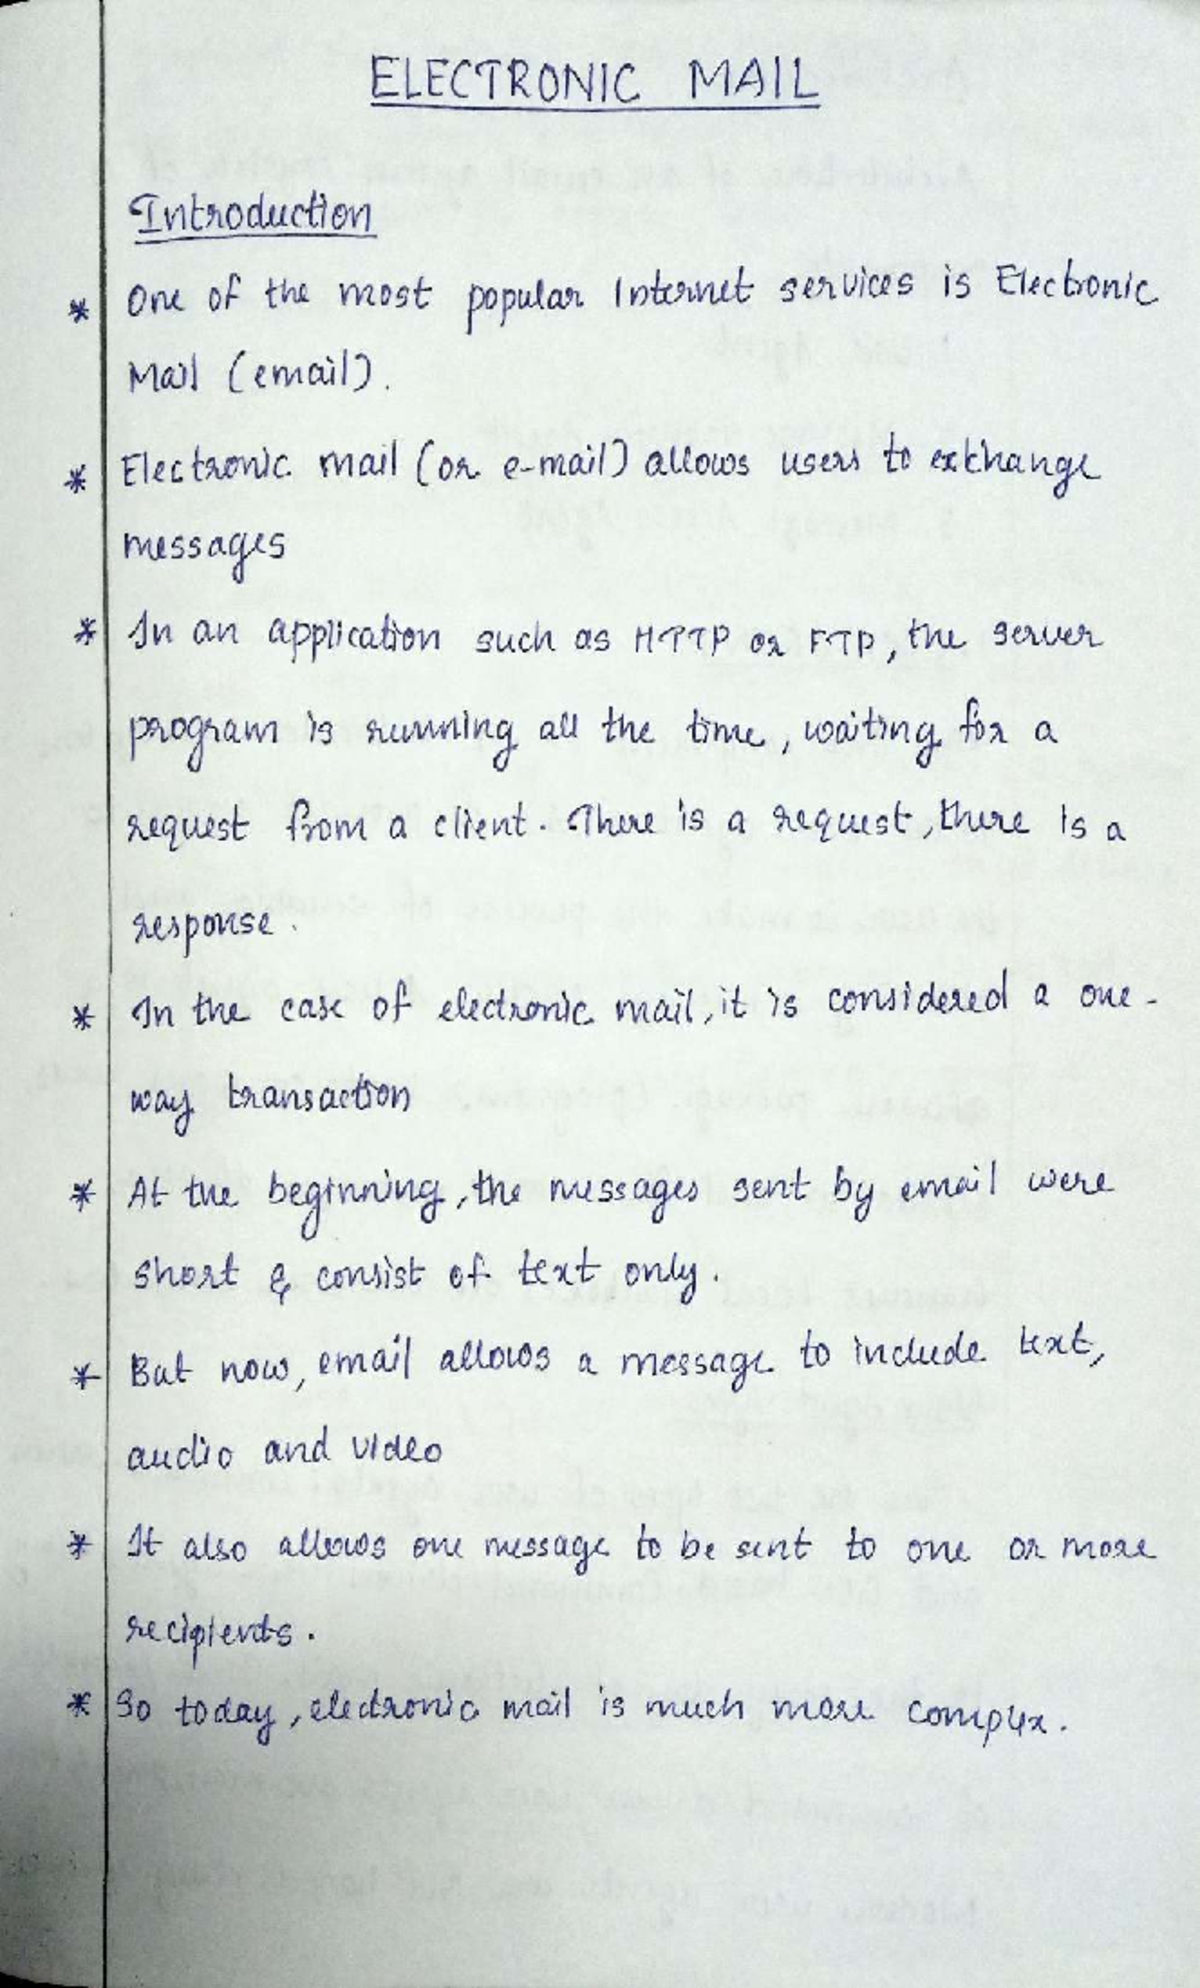 ELECTRONIC MAIL
Introduction
* One of the most popular Internet services is Electronic
Mail (email).
* Electronic mail (or e-mail) allows users to exchange
messages
* In an application such as HTTP or FTP, the server
program is running all the time, waiting for a
request from a client. There is a request, there is a
response.
* In the case of electronic mail, it is considered a one-
way transaction
* At the beginning, the messages sent by email were
short & consist of text only.
* But now, email allows a message to include text,
audio and video
* It also allows one message to be sent to one or more
recipients.
* So today, electronic mail is much more complex.